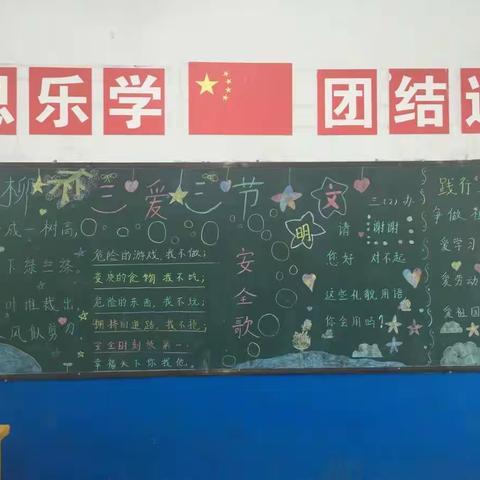 思乐学 团结
柳
成一树高,
下绿丝绦。
叶谁裁出,
风似剪刀。
三爱三节
危险的游戏,我不做;
变质的食物,我不吃;
危险的东西,我不玩;
拥挤的道路,我不抢;
安全时刻放第一,
幸福天下你我他。
安全歌
文明
三(2)办
请 谢谢
您好 对不起
这些礼貌用语
你会用吗?
践行
争做
爱学习
爱劳动
爱祖国